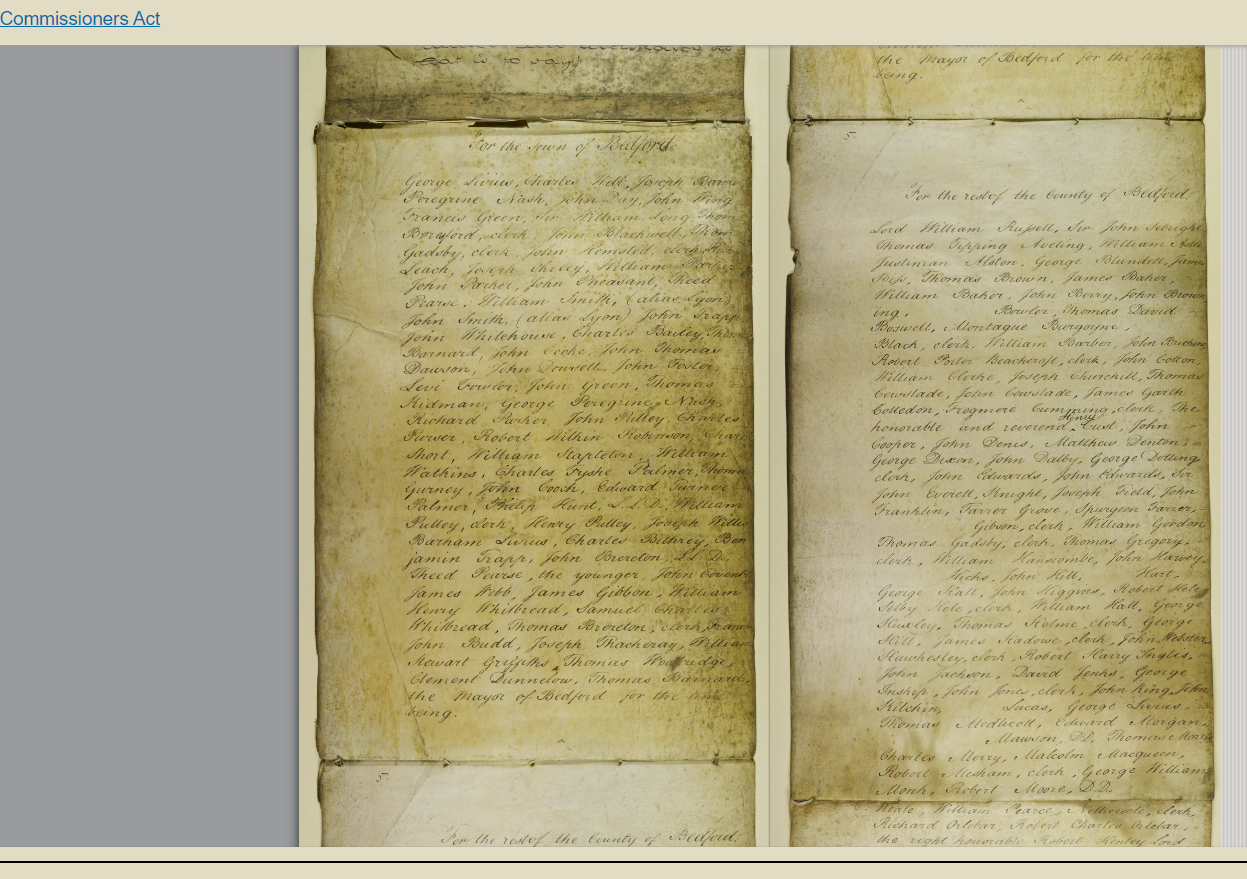 Commissioners Act
that is to say)
For the Town of Bedford.
George Livius, Charles Webb, Joseph Barn
Peregrine Nash, John Day, John Wing
Francis Green, Sir William Long, Thom
Beresford, clerk, John Blackwell, Thom
Gadsby, clerk, John Hemsted, clerk,
Leach, Joseph William
John Parker, John Pheasant, Theed
Pearse, William Smith, (alias Lyon)
John Smith, (alias Lyon) John Trapp
John Whitehouse, Charles Bailey, Thom
Barnard, John Cooke, John Thomas
Dawson, John Dowsett, John Foster,
Levi Cowler, John Green, Thomas
Kidman, George Peregrine Nash,
Richard Parker, John Pulley, Charles
Purser, Robert Wilkin Robinson,
Short, William Stapleton, William
Watkins, Charles Fyshe Palmer, Thoma
Gurney, John Gooch, Edward Turner
Palmer, Philip Hunt, L.L.D., William
Pulley, clerk, Henry Pulley, Joseph Willis
Barham Livius, Charles Bithrey, Ben
jamin Trapp, John Brereton, L.L.D.
Theed Pearse, the younger, John Covent
James Webb, James Gibbon, William
Henry Whitbread, Samuel Charles
Whitbread, Thomas Brereton, clerk, Franci
John Budd, Joseph Thackeray, William
Stewart Griffiths, Thomas Woolridge,
Clement Dunnelow, Thomas Barnard,
the Mayor of Bedford for the time
being.
5
For the rest of the County of Bedford.
the Mayor of Bedford for the time
being.
5
For the rest of the County of Bedford.
Lord William Russell, Sir John Sebright
Thomas Tipping Aveling, William Astel
Justinian Alston, George Blundell, James
Bess, Thomas Brown, James Baker,
William Baker, John Berry, John Brown
ing, Bowler, Thomas David
Boswell, Montague Burgoyne,
Black, clerk, William Barber, John
Robert Porter Beachcroft, clerk, John Cotton,
William Clerke, Joseph Churchill, Thomas
Cowslade, John Cowslade, James Garth
Colledon, Frogmore Cumming, clerk, the
honorable and reverend Henry Cust, John
Cooper, John Denis, Matthew Denton,
George Dixon, John Dalby, George Dolling
clerk, John Edwards, John Edwards, Sir
John Everett, Knight, Joseph Field, John
Franklin, Farrer Grove, Spurgeon Farrer,
Gibson, clerk, William Gordon
Thomas Gadsby, clerk, Thomas Gregory,
clerk, William Hanscombe, John Harvey,
Hicks, John Hill, Hurt,
George Hall, John Higgins, Robert Hele
Selby Hele, clerk, William Hall, George
Huxley, Thomas Holme, clerk, George
Hill, James Hadow, clerk, John Webster
Hawkesley, clerk, Robert Harry Inglis,
John Jackson, David Jenks, George
Inskip, John Jones, clerk, John King, John
Kitchin, Lucas, George Livius,
Thomas Medlicott, Edward Morgan,
Mawson, D.D. Thomas
Charles Merry, Malcolm Macqueen,
Robert Mesham, clerk, George William
Monk, Robert Moore, D.D.
Neale, William Pearce, Nethersole, clerk,
Richard Orlebar, Robert Charles Orlebar,
the right honorable Robert Henley Lord